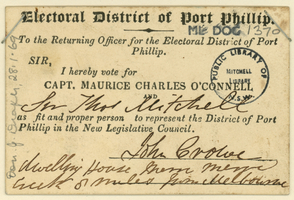 Electoral District of Port Phillip.
ML DOC 1370
To the Returning Officer for the Electoral District of Port
Phillip.
SIR,
I hereby vote for
CAPT. MAURICE CHARLES O'CONNELL
AND
Sir Thos Mitchell
as fit and proper person to represent the District of Port
Phillip in the New Legislative Council.
John Crowe
dwelling House
creek 8 miles from Melbourne
PUBLIC LIBRARY OF
MITCHELL
LIBRARY
N.S.W.